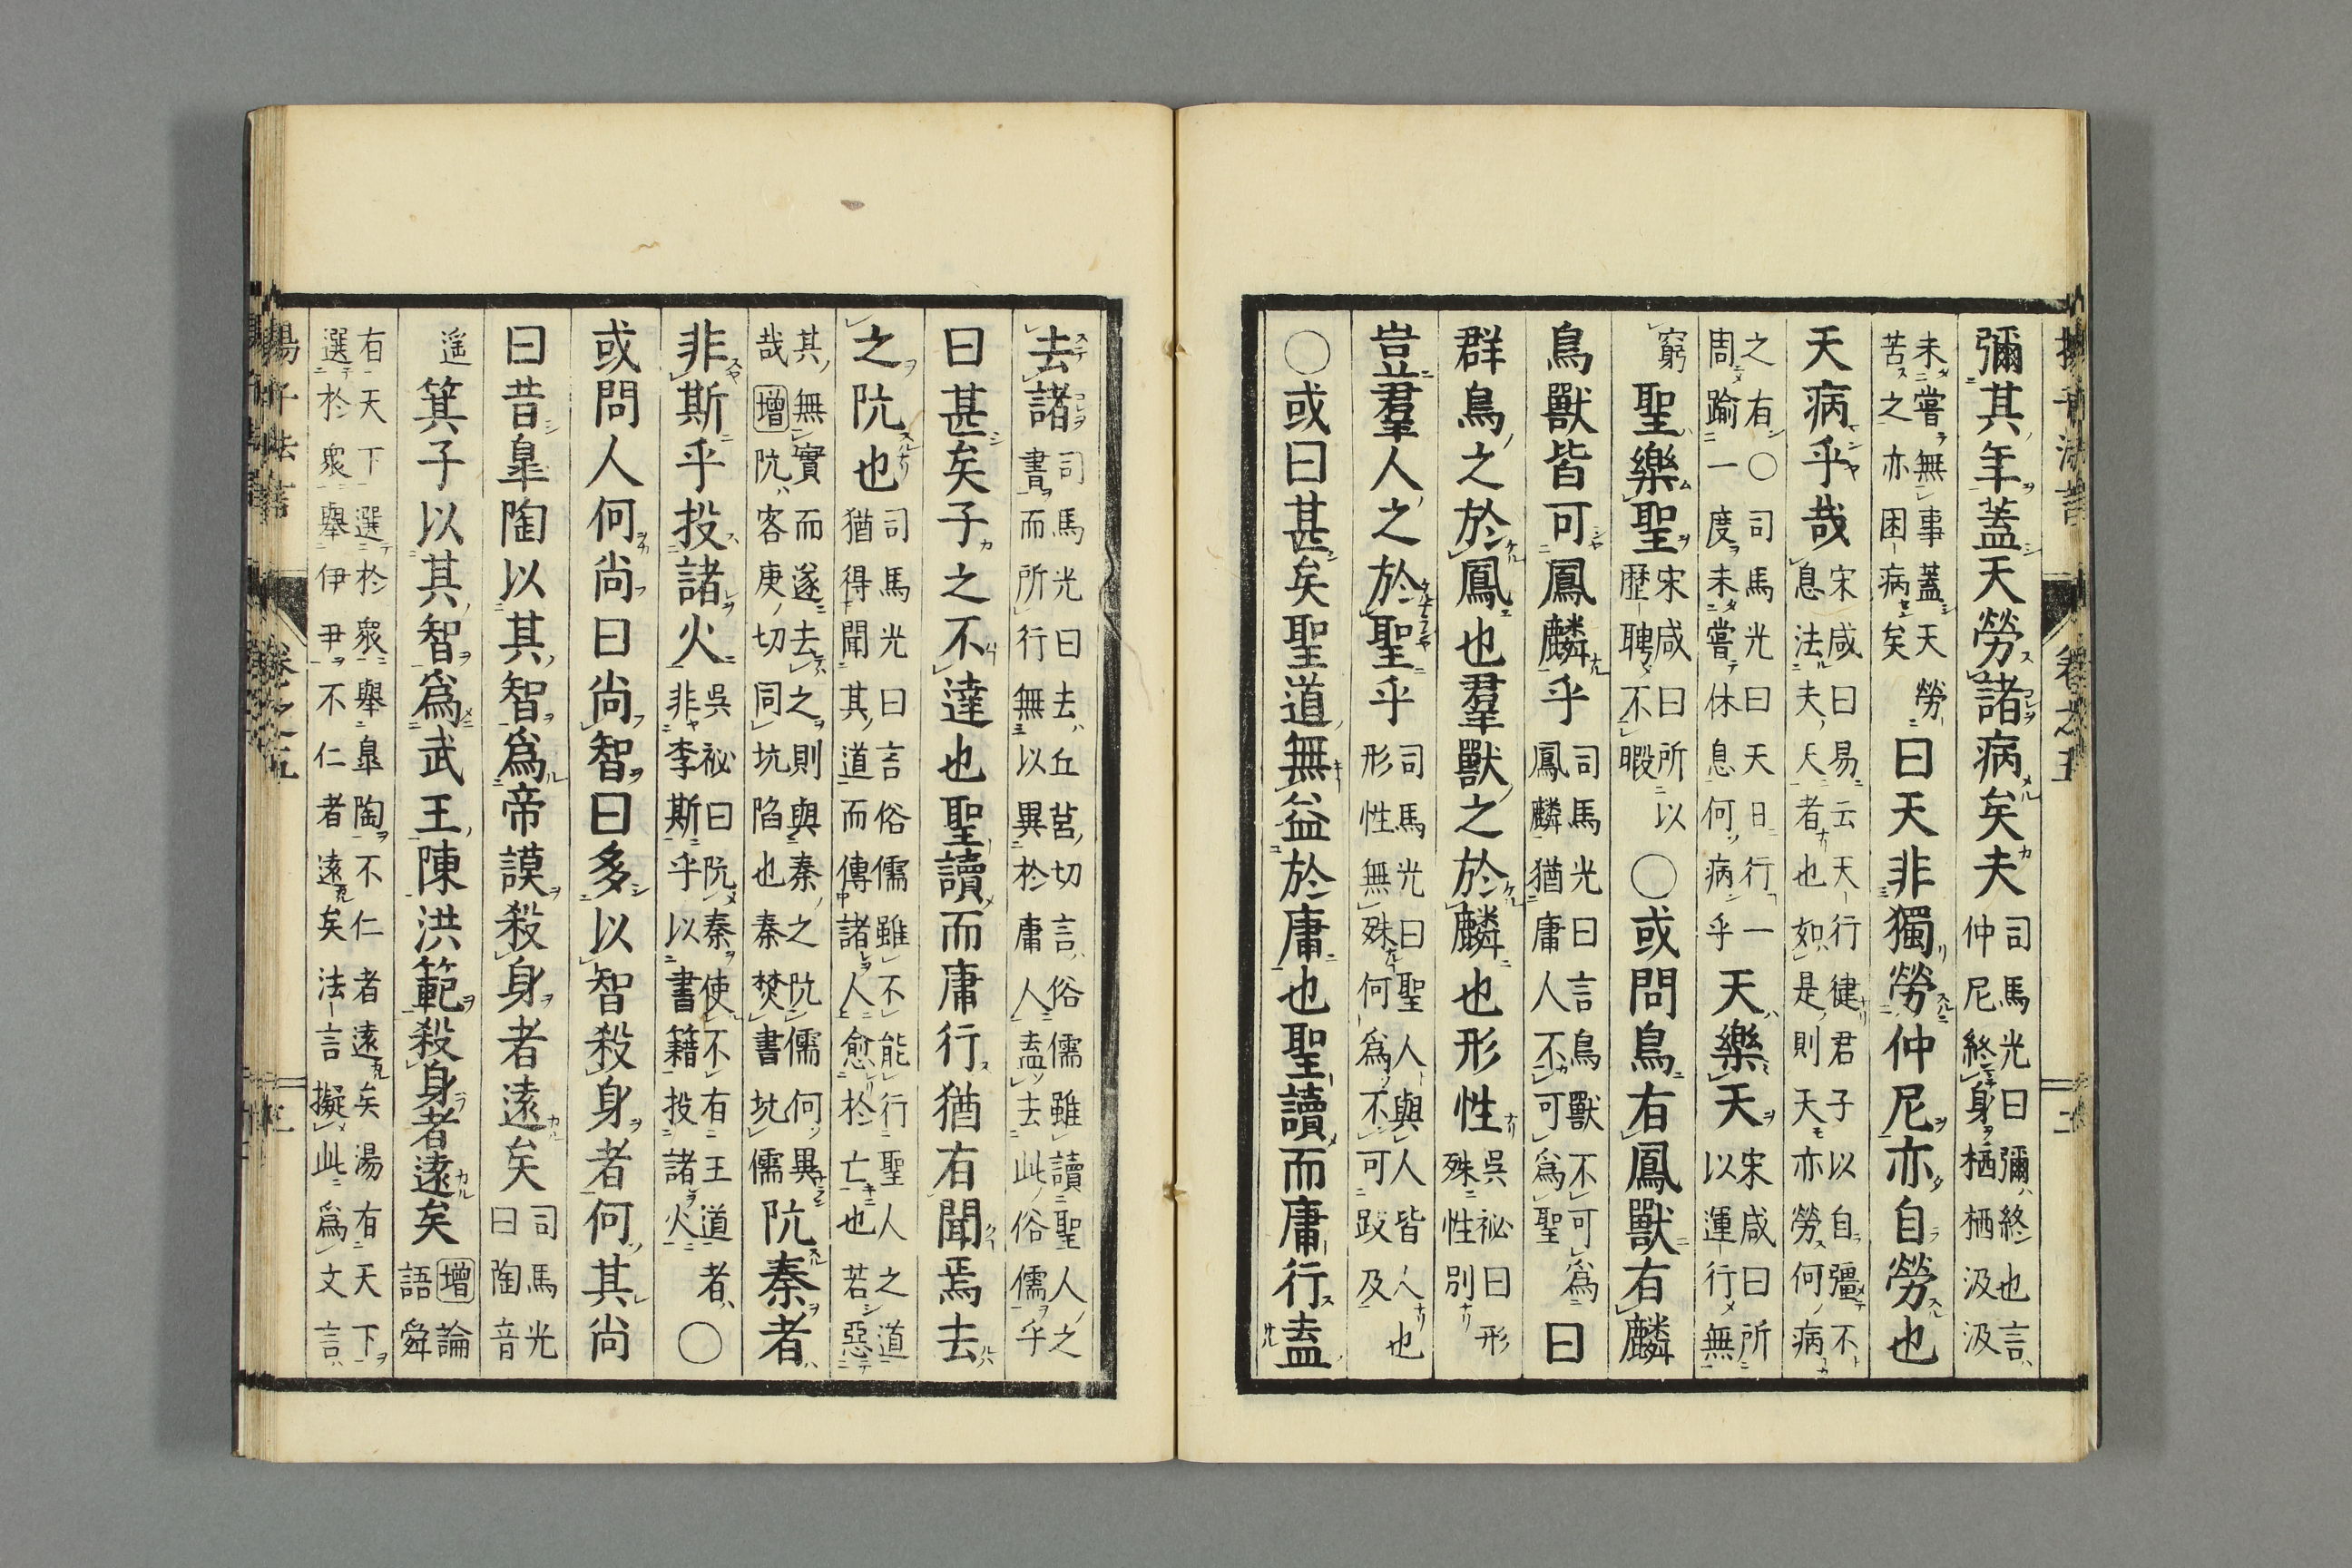 彌其年蓋天勞諸病矣夫司馬光曰彌終也言仲尼終身栖栖汲汲
未嘗無事蓋天勞苦之亦困病矣曰天非獨勞仲尼亦自勞也
天病乎哉宋咸曰易云天行健君子以自彊不息法夫天者也如是則天亦勞何病
之有〇司馬光曰天日行一周踰一度未嘗休息何病乎天樂天宋咸曰所以運行無
窮聖樂聖宋咸曰所以歷聘不暇〇或問鳥有鳳獸有麟
鳥獸皆可鳳麟乎司馬光曰言鳥獸不可爲鳳麟猶庸人不可爲聖曰
群鳥之於鳳也羣獸之於麟也形性吳祕曰形殊性別
豈羣人之於聖乎司馬光曰聖人與人皆人也形性無殊何爲不可跂及
〇或曰甚矣聖道無益於庸也聖讀而庸行盍
去諸司馬光曰去丘莒切言俗儒雖讀聖人之書而所行無以異於庸人盍去此俗儒乎
曰甚矣子之不達也聖讀而庸行猶有聞焉去
之阬也司馬光曰言俗儒雖不能行聖人之道猶得聞其道而傳諸人愈於亡也若惡
其無實而遂去之則與秦之阬儒何異哉增阬客庚切同坑陷也秦焚書坑儒阬秦者
非斯乎投諸火吳祕曰阬秦使不有王道者非李斯乎以書籍投諸火〇
或問人何尚曰尚智曰多以智殺身者何其尚
曰昔皐陶以其智爲帝謨殺身者遠矣司馬光曰陶音
遥箕子以其智爲武王陳洪範殺身者遠矣增論語舜
有天下選於衆舉皐陶不仁者遠矣湯有天下選於衆舉伊尹不仁者遠矣法言擬此爲文言